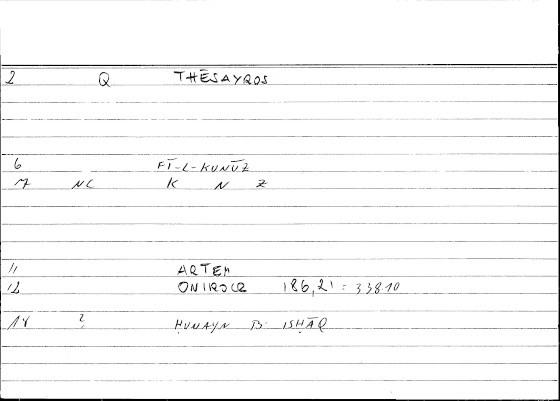 2 Q THĒSAYROS
6 FĪ-L-KUNŪZ
7 NC K N Z
11 ARTEM
12 ONIROCR 186,21 = 338.10
14 ? ḤUNAYN B. ISḤĀQ